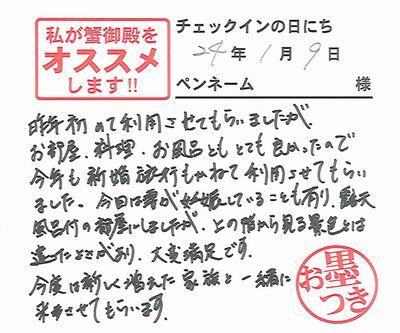 私が蟹御殿を
オススメ
します!!
チェックインの日にち
24年1月9日
ペンネーム 様
昨年初めて利用させてもらいましたが、
お部屋、料理、お風呂ともとても良かったので
今年も新婚旅行もかねて利用させてもらい
ました。今回は妻が妊娠していることも有り、露天
風呂付の部屋にしましたが、上の階から見る景色は
違ったよさがあり、大変満足です。
今度は新しく増えた家族と一緒に
来させてもらいます。
墨
おつき